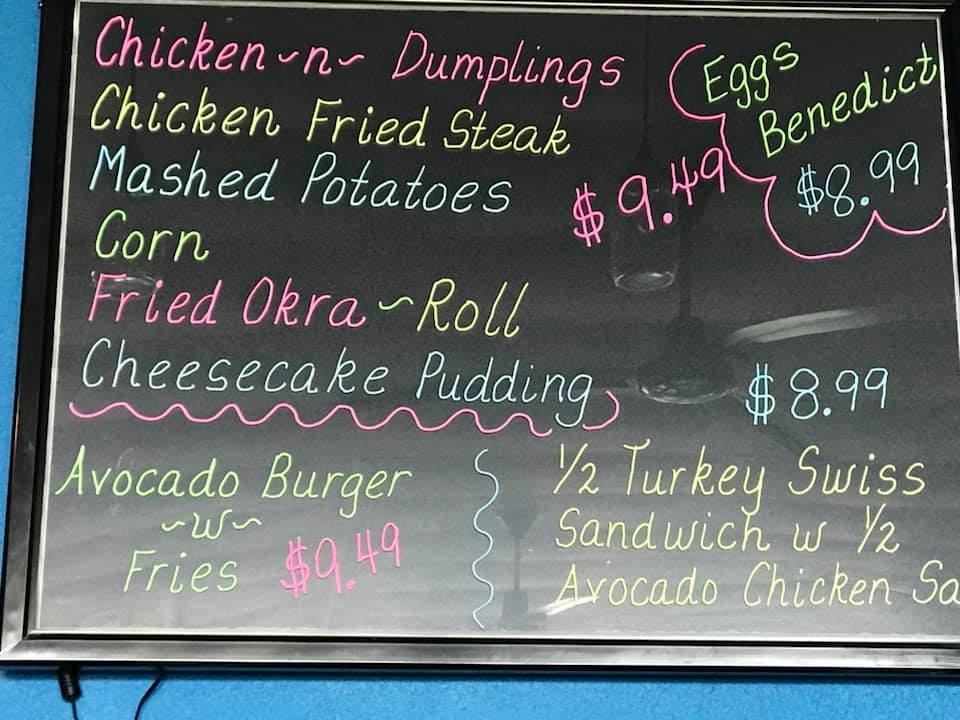 Chicken ~n~ Dumplings
Chicken Fried Steak
Mashed Potatoes
Corn
Fried Okra ~ Roll
Cheesecake Pudding
$9.49
Eggs
Benedict
$8.99
Avocado Burger
~w~
Fries $9.49
$8.99
1/2 Turkey Swiss
Sandwich w 1/2
Avocado Chicken Sa